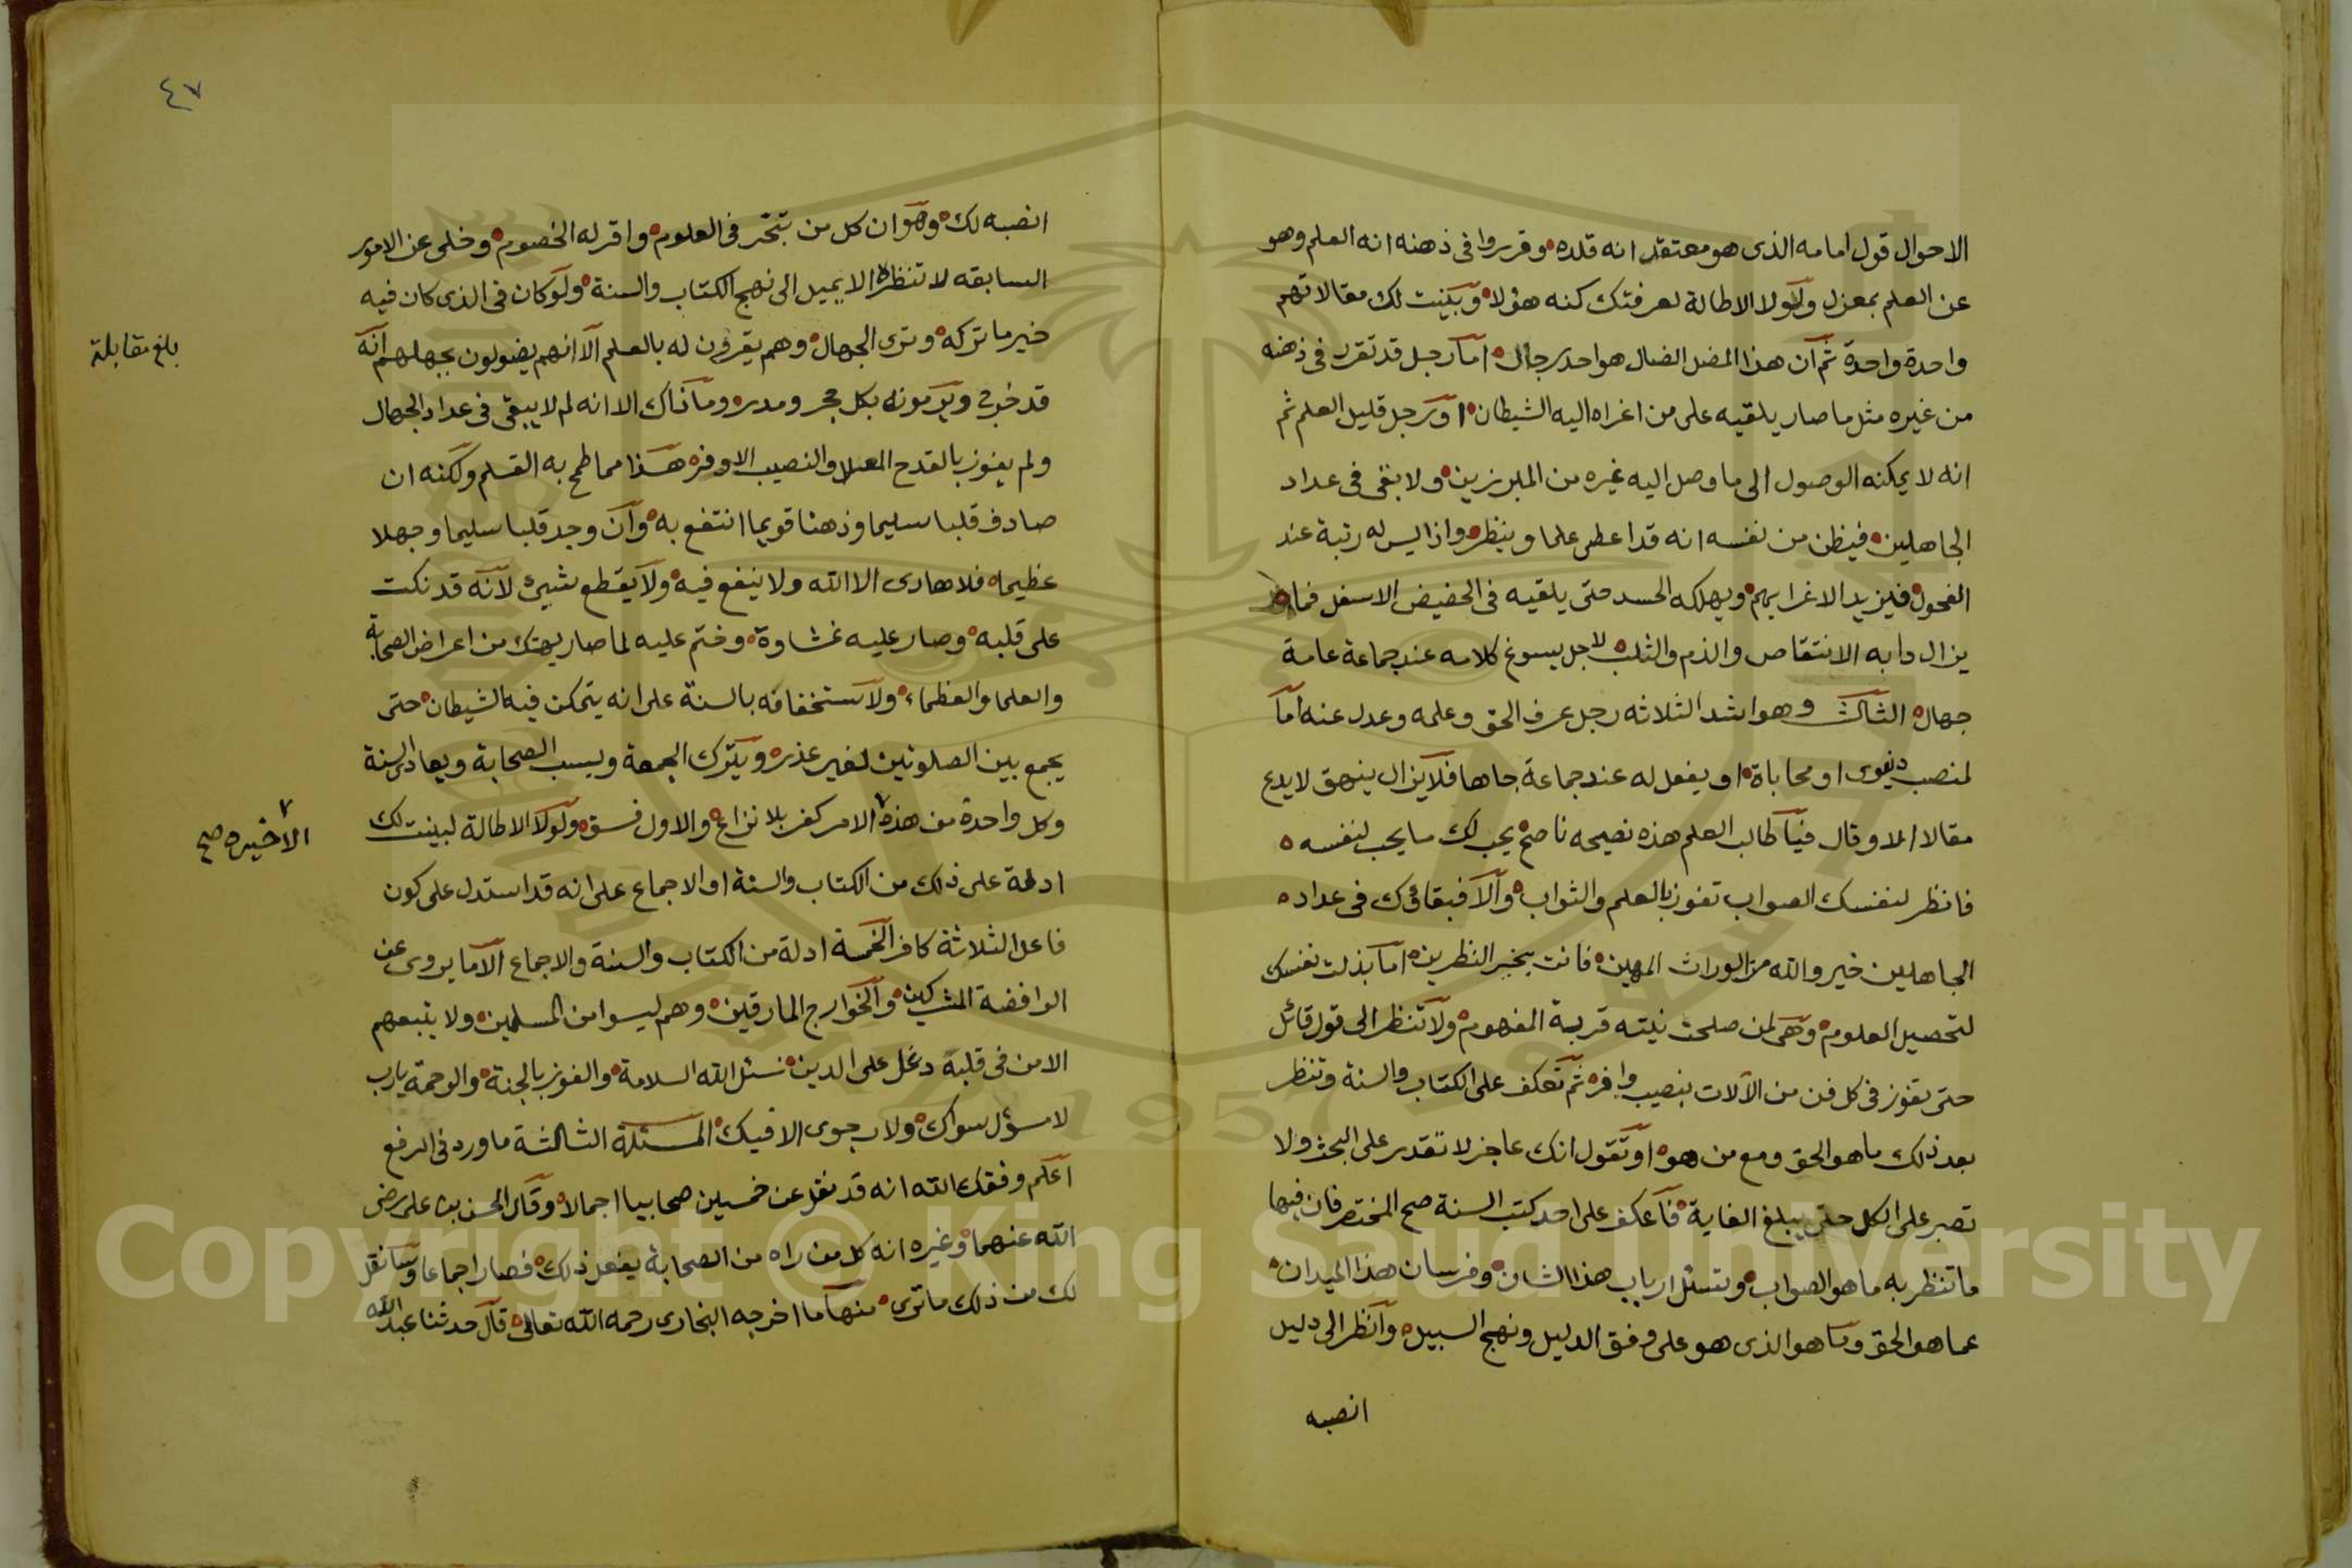 الاحوال قول امامه الذى هو معتقد انه قلده وقرروا فى ذهنه انه العلم وهو
عن العلم بمعزل ولولا الاطالة لعرفتك كنه هؤلا وبينت لك مقالاتهم
واحدة واحدة ثم ان هذا المضل الضال هو احد رجال اما رجل قد تقرر فى ذهنه
من غيره مثل ما صار يلقيه على من اغراه اليه الشيطان او رجل قليل العلم ثم
انه لا يمكنه الوصول الى ما وصل اليه غيره من المبرزين ولا بقى فى عداد
الجاهلين فيظن من نفسه انه قد اعطى علما وينظر واذا ليس له رتبة عند
الفحول فيزيد الاغرا بهم ويهلكه الحسد حتى يلقيه فى الحضيض الاسفل فما
يزال دابه الانتقاص والذم والثلب لاجل يسوغ كلامه عند جماعة عامة
جهال الثالث وهو اشد الثلاثه رجل عرف الحق وعلمه وعدل عنه اما
لمنصب دنيوى او محاباة او يفعل له عند جماعة جاها فلا يزال ينهق لا يدع
مقالا الا وقال فيا طالب العلم هذه نصيحه ناصح يحب لك ما يحب لنفسه
فانظر لنفسك الصواب تفوز بالعلم والثواب والا فبقاؤك فى عداد
الجاهلين خير والله من الوراث المهين فانت بخير النظرين اما بذلت نفسك
لتحصيل العلوم وهى لمن صلحت نيته قريبة المفهوم ولا تنظر الى قول قائل
حتى تفوز فى كل فن من الآلات بنصيب وافر ثم تعكف على الكتاب والسنة وتنظر
بعد ذلك ما هو الحق ومع من هو او تقول انك عاجز لا تقدر على البحث ولا
تصبر على الكل حتى يبلغ الغاية فاعكف على احد كتب السنة صح المختصر فان فيها
ما تنظر به ما هو الصواب وتسئل ارباب هذا الشان وفرسان هذا الميدان
عما هو الحق وما هو الذى هو على وفق الدليل ونهج السبيل وانظر الى دليل
انصبه
٤٧
انصبه لك وهو ان كل من تبحر فى العلوم واقر له الخصوم وخلى عن الامور
السابقه لا تنظره الا يميل الى نهج الكتاب والسنة ولو كان فى الذى كان فيه
خير ما تركه وترى الجهال وهم يقرون له بالعلم الا انهم يضولون بجهلهم انه
بلغ مقابلة
قد خولج ويرمونه بكل حجر ومدر وما ذاك الا انه لم لا يبقى فى عداد الجهال
ولم يفوز بالقدح المعلا والنصيب الاوفر هذا مما طمح به القلم ولكنه ان
صادف قلبا سليما وذهنا قويما انتفع به وان وجد قلبا سليما وجهلا
عظيما فلا هادى الا الله ولا ينفع فيه ولا يقطع شيئ لانه قد نكت
على قلبه وصار عليه غشاوة وختم عليه لما صار يهتك من اعراض الصحابة
والعلما والعظماء ولاستخفافه بالسنة على انه يتمكن فيه الشيطان حتى
يجمع بين الصلوتين لغير عذر ويترك الجمعة ويسب الصحابة ويعادى السنة
وكل واحدة من هذه الامر كفر بلا نزاع والاول فسق ولولا الاطالة لبينت لك
الاخيره صح
ادلة على ذلك من الكتاب والسنة او الاجماع على انه قد استدل على كون
فاعل الثلاثة كافر الخمسة ادلة من الكتاب والسنة والاجماع الا ما يروى عن
الرافضة المشركين والخوارج المارقين وهم ليسوا من المسلمين ولا يتبعهم
الا من فى قلبه دغل على الدين نسئل الله السلامة والفوز بالجنة والرحمة يارب
لا سؤل سواك ولا رجوى الا فيك المسئلة الثالثة ما ورد فى الرفع
اعلم وفقك الله انه قد نقل عن خمسين صحابيا اجمالا وقال الحسن بن على رضى
الله عنهما وغيره انه كل من راه من الصحابة يفعل ذلك فصار اجماعا وسانقل
لك من ذلك ما ترى منها ما اخرجه البخارى رحمه الله تعالى قال حدثنا عبدالله
Copyright © King Saud University
1957